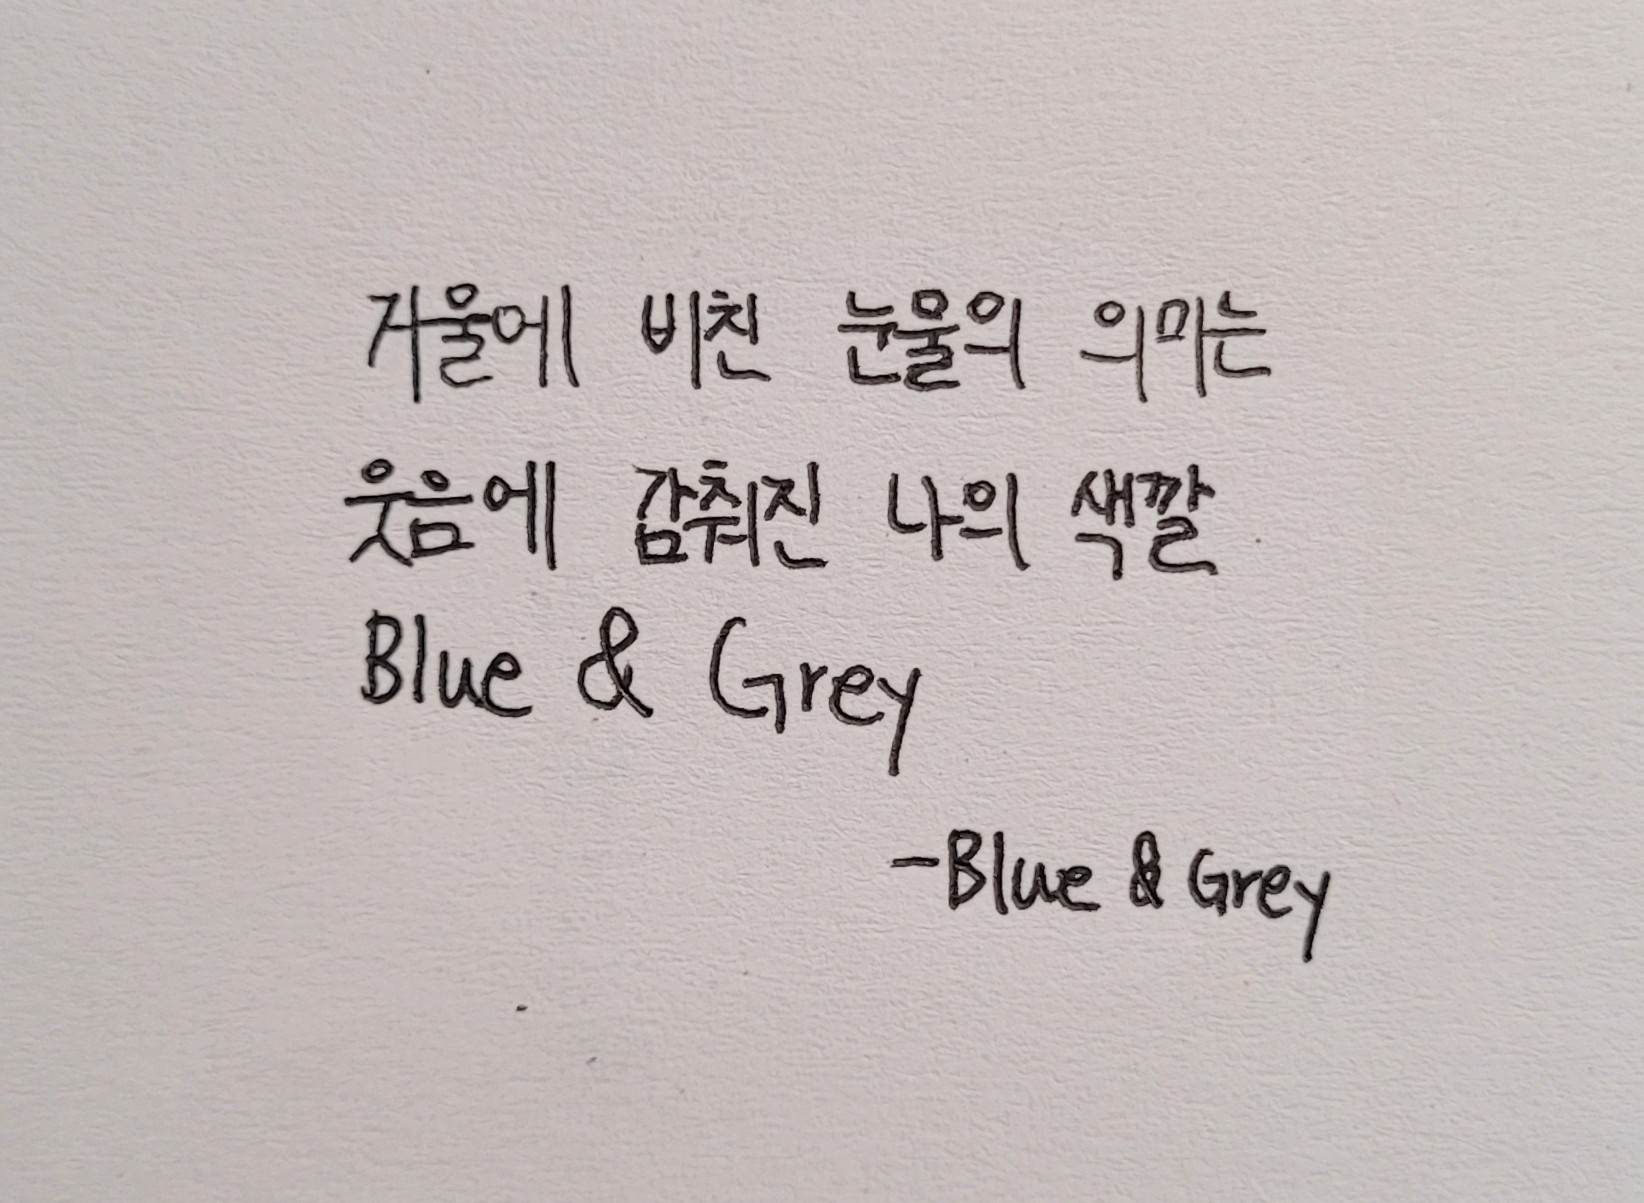 거울에 비친 눈물의 의미는
웃음에 감춰진 나의 색깔
Blue & Grey
-Blue & Grey